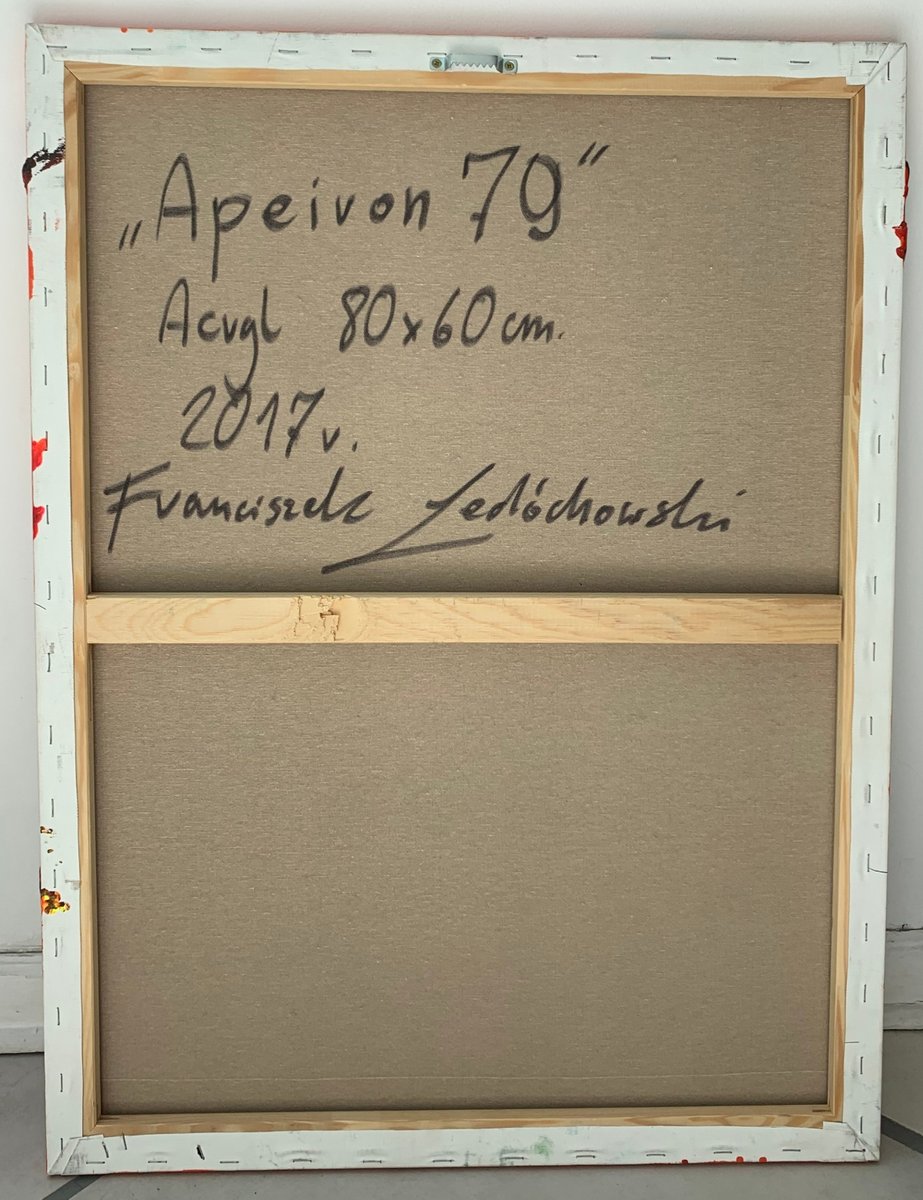 „Apeiron 79”
Acryl 80x60cm.
2017r.
Franciszek Ledóchowski